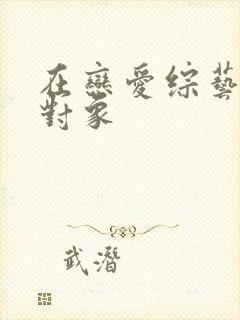 在戀愛綜藝
對象
武潛